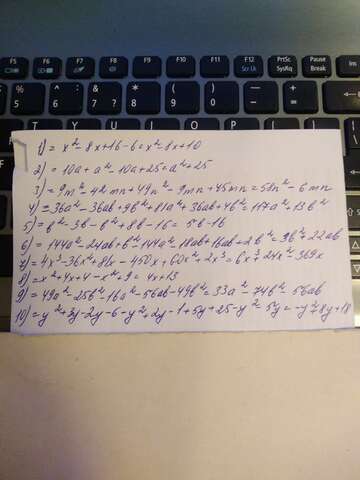 F5 F6 F7 F8 F9 F10 F11 F12 PrtSc Pause
Scr Lk SysRq Break Ins
1) = x² - 8x + 16 - 6 = x² - 8x + 10
2) = 10a + a² - 10a + 25 = a² + 25
3) = 9m² - 42mn + 49n² - 9mn + 45mn = 58n² - 6mn
4) = 36a² - 36ab + 9b² + 81a² + 36ab + 4b² = 117a² + 13b²
5) = b² - 3b - b² + 8b - 16 = 5b - 16
6) = 144a² - 24ab + b² - 144a² - 18ab + 16ab + 2b² = 3b² + 22ab
7) = 4x³ - 36x² + 81x - 450x + 60x² - 2x³ = 6x³ 24x² - 369x
8) = x² + 4x + 4 - x² + 9 = 4x + 13
9) = 49a² - 25b² - 16a² - 56ab - 49b² = 33a² - 74b² - 56ab
10) = y² + 3y - 2y - 6 - y² + 2y - 1 + 5y + 25 - y² - 5y = -y² + 8y + 18